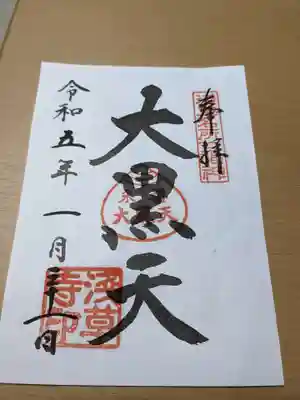 奉拝
大黒天
令和五年一月三十一日
浅草寺印